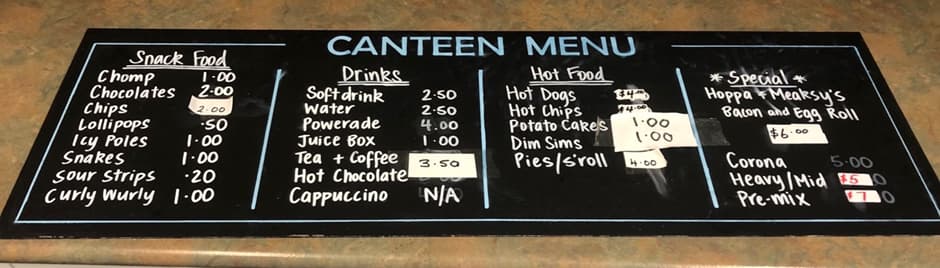 CANTEEN MENU
Snack Food
Chomp 1.00
Chocolates 2.00
Chips 2.00
Lollipops .50
Icy Poles 1.00
Snakes 1.00
Sour Strips .20
Curly Wurly 1.00
Drinks
Softdrink 2.50
Water 2.50
Powerade 4.00
Juice Box 1.00
Tea + Coffee 3.50
Hot Chocolate
Cappuccino N/A
Hot Food
Hot Dogs
Hot Chips
Potato Cakes 1.00
Dim Sims 1.00
Pies/s'roll 4.00
* Special *
Hoppa + Meaksy's
Bacon and Egg Roll
$6.00
Corona 5.00
Heavy/Mid $5
Pre-mix $7